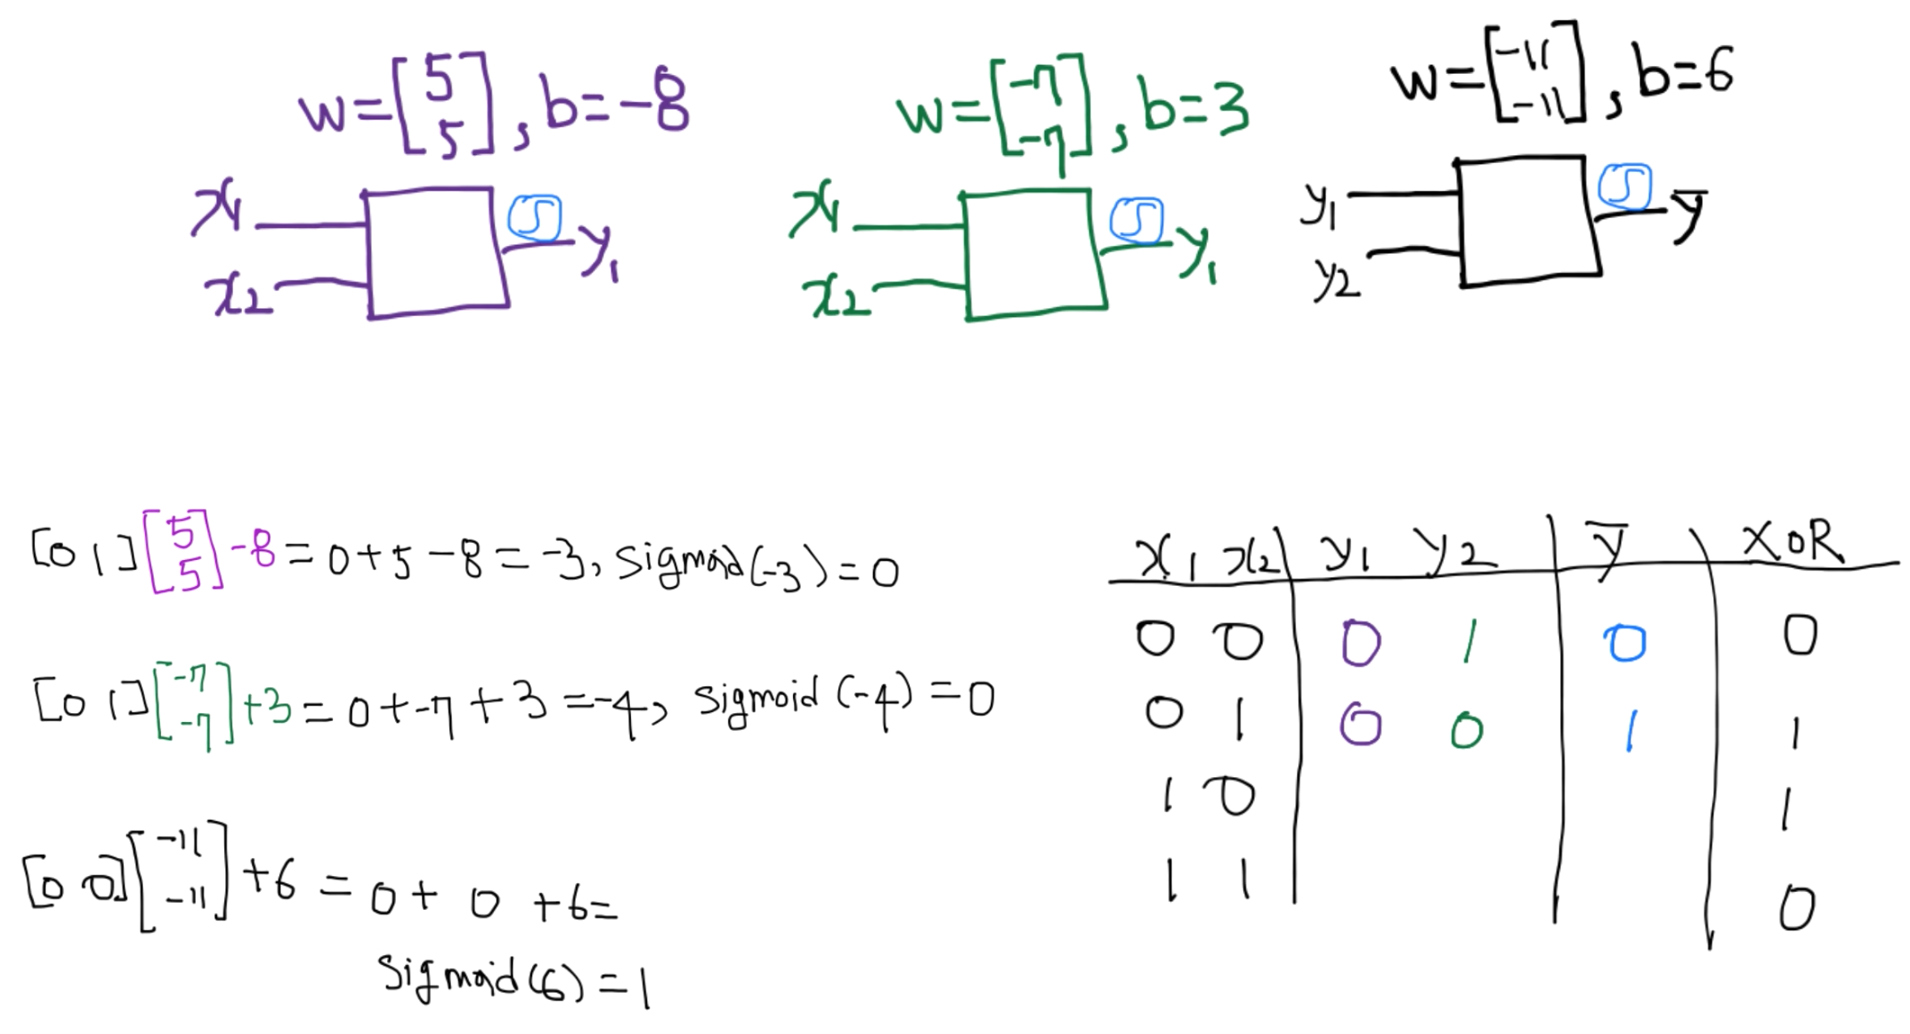 w=[5 5], b=-8
x1
x2
S
y1
w=[-7 -7], b=3
x1
x2
S
y1
w=[-11 -11], b=6
y1
y2
S
y̅
[0 1][5 5]-8=0+5-8=-3, sigmoid(-3)=0
[0 1][-7 -7]+3=0+-7+3=-4, sigmoid(-4)=0
[0 0][-11 -11]+6=0+0+6=
sigmoid(6)=1
x1 x2 y1 y2 y̅ XOR
0 0 0 1 0 0
0 1 0 0 1 1
1 0 1
1 1 0